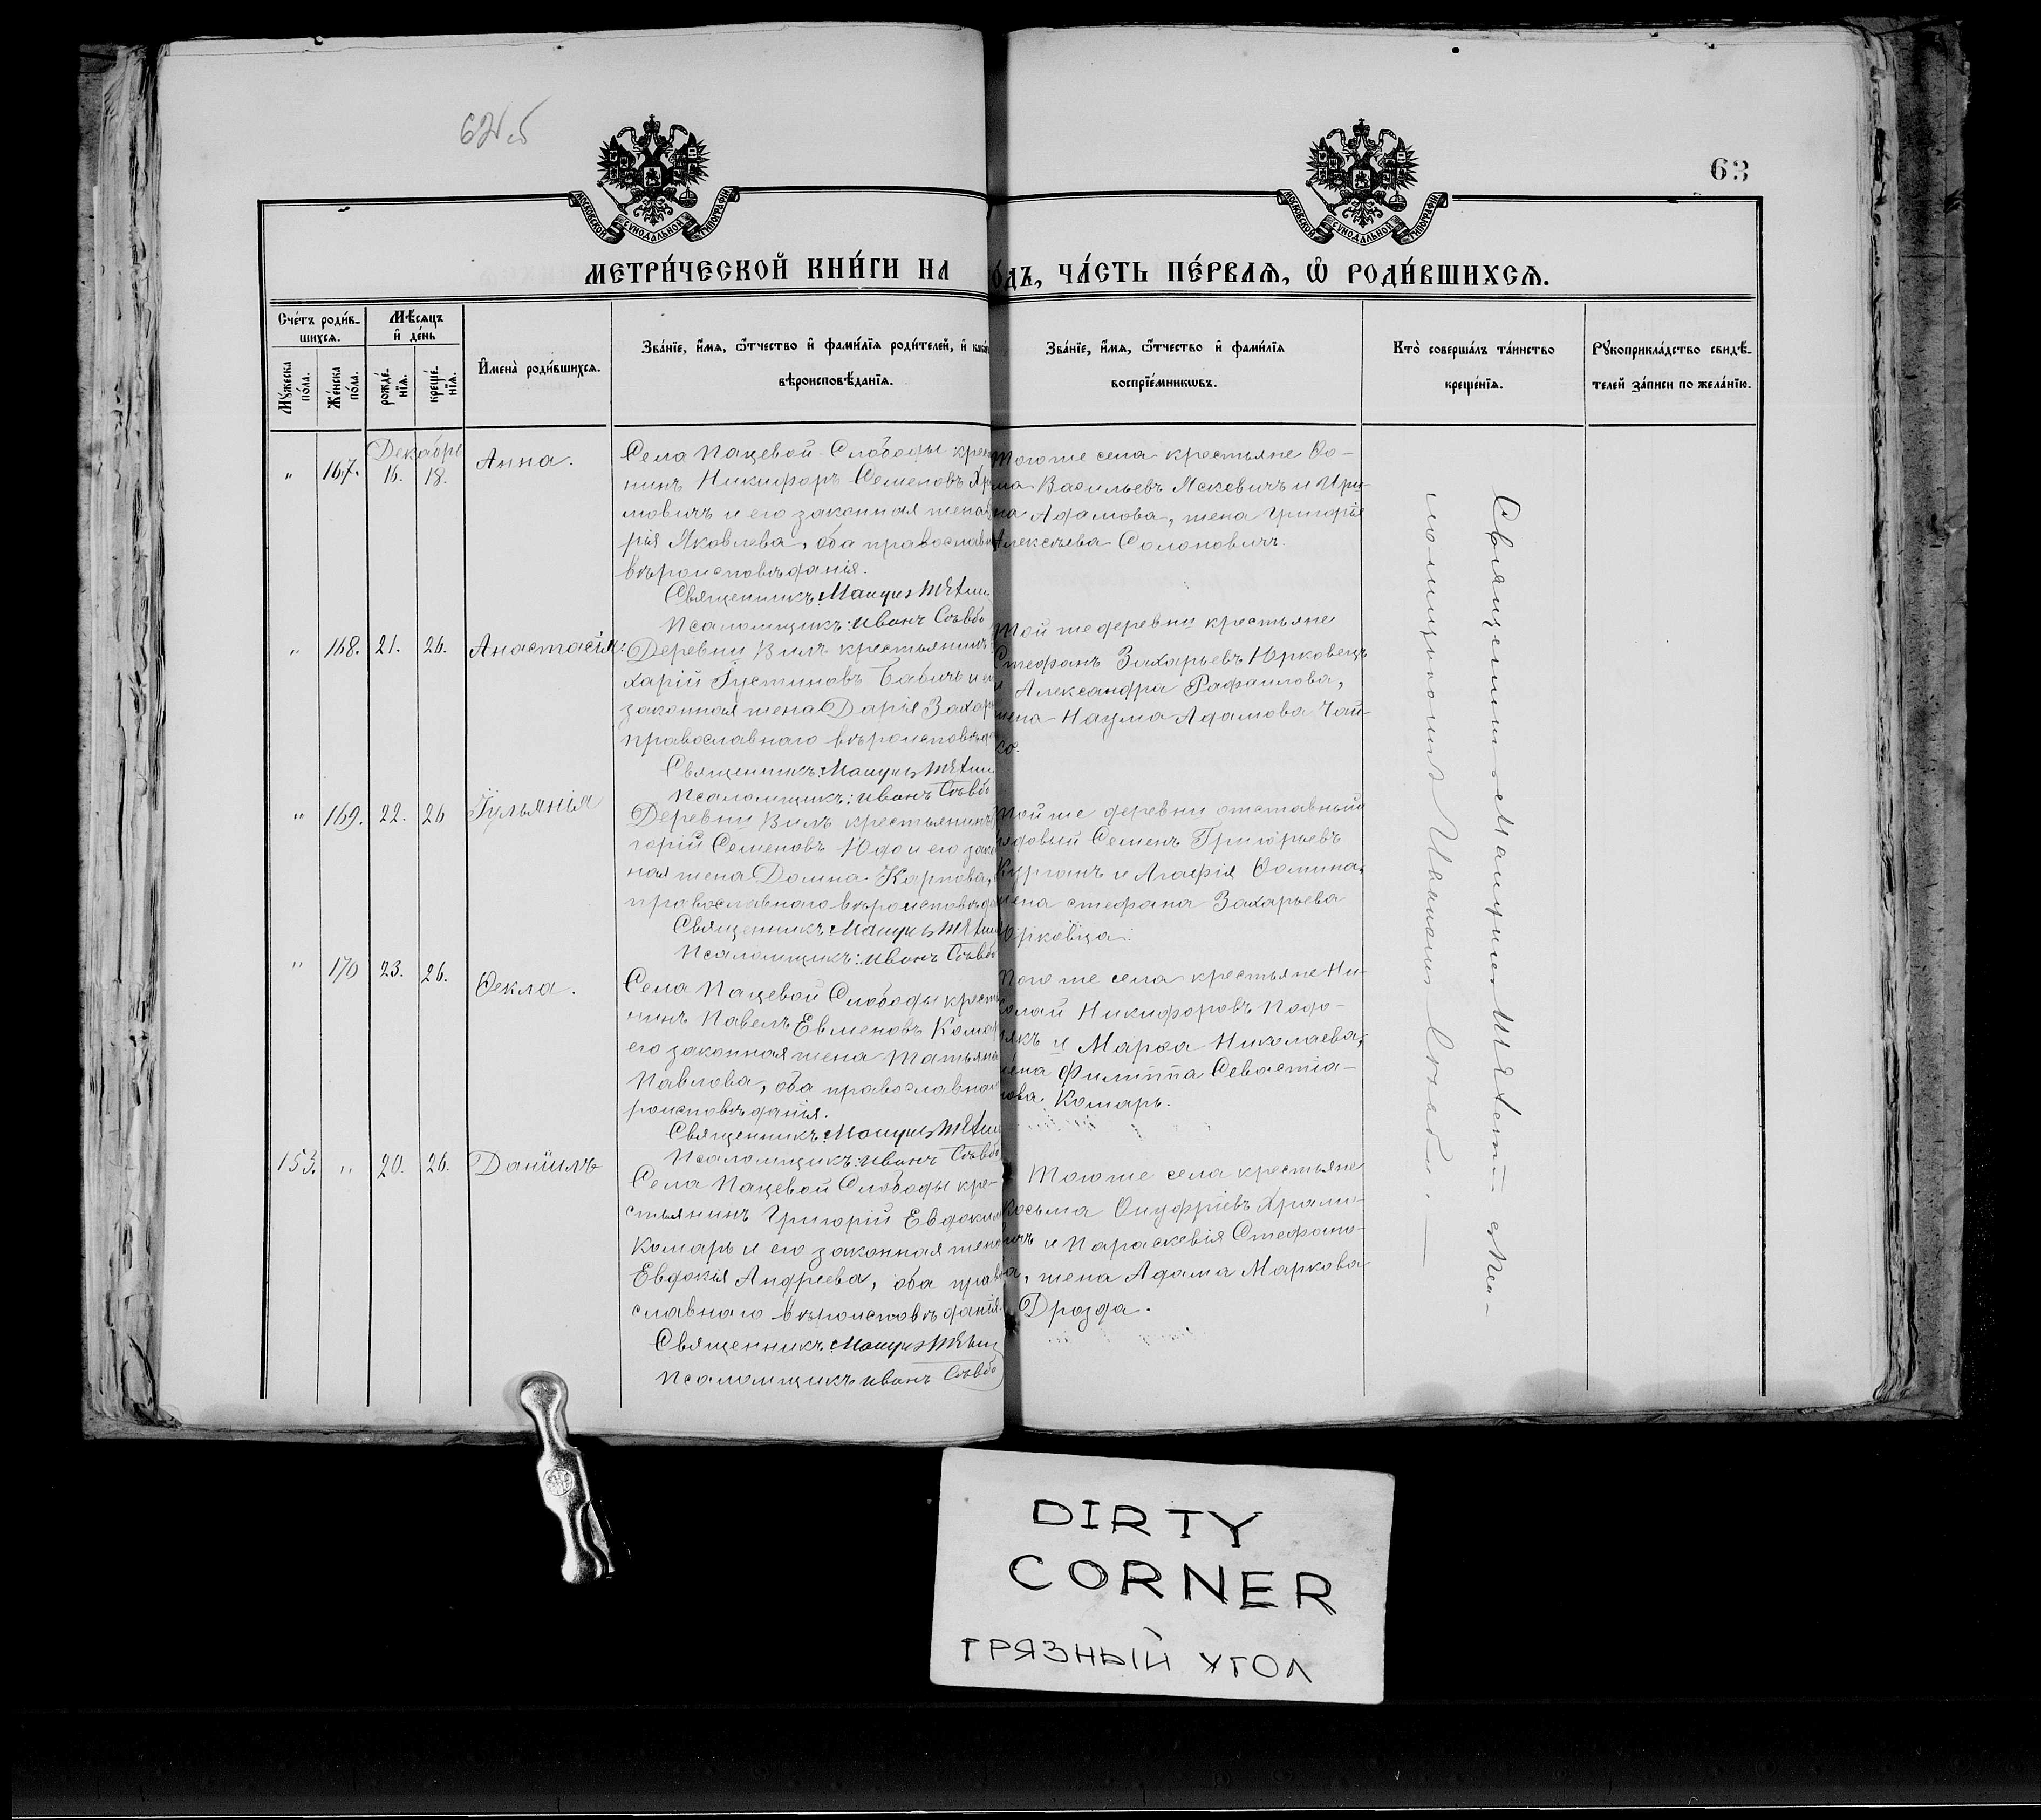 62об
63
МОСКОВСКОЙ СУНОДАЛЬНОЙ ТИПОГРАФІИ
МОСКОВСКОЙ СУНОДАЛЬНОЙ ТИПОГРАФІИ
МЕТРИ́ЧЕСКОЙ КНИ́ГИ НА
О́ДЪ, ЧА́СТЬ ПЕ́РВАѦ, Ѡ҆ РОДИ́ВШИХСѦ.
Сче́тъ роди́в-
шихсѧ.
Мѣ́сѧцъ
и҆ де́нь
Мꙋ́жеска
по́ла.
Же́нска
по́ла.
рожде́-
нїѧ.
креще́-
нїѧ.
И҆мена̀ роди́вшихсѧ.
Зва́нїе, и҆́мѧ, ѻ҆́тчество и҆ фами́лїѧ роди́телей, и҆
вѣроисповѣ́данїѧ.
Зва́нїе, и҆́мѧ, ѻ҆́тчество и҆ фами́лїѧ
воспрїе́мникѡвъ.
Кто̀ соверша́лъ та́инство
креще́нїѧ.
Рꙋкоприкла́дство свидѣ́-
телей за́писи по жела́нїю.
Декабре
" 167. 16. 18. Анна.
Села Пацевой-Слободы крес
нинъ Никифоръ Семеновъ Хра
мовичъ и его законная жена
рія Яковлева, оба православн
вѣроисповѣданія.
Священникъ
Псаломщикъ: Иванъ
Того же села крестьяне Ѳо-
ма Васильевъ Яскевичъ и Ири-
на Адамова, жена Григорія
Алексѣева Солоновичъ.
" 168. 21. 26. Анастасія.
Деревни Вилъ крестьянинъ
харій Іустиновъ Бабичъ и ег
законная жена Дарія Захар
православнаго вѣроисповѣд
Священникъ
Псаломщикъ: Иванъ
Той же деревни крестьяне
Стефанъ Захарьевъ Юрковецъ
и Александра Рафаилова,
жена Наума Адамова Чай-
ко.
" 169. 22. 26 Іульянія
Деревни Вилъ крестьянинъ
горій Семеновъ Юдо и его зако
ная жена Домна Карпова,
православнаго вѣроисповѣда
Священникъ
Псаломщикъ: Иванъ
Той же деревни отставный
рядовый Семенъ Григорьевъ
Курганъ и Агафія Ѳомина,
жена Стефана Захарьева
Юрковца.
" 170 23. 26. Ѳекла.
Села Пацевой Слободы крест
нинъ Павелъ Евменовъ Комар
его законная жена Татьяна
Павлова, оба православнаго
роисповѣданія.
Священникъ
Псаломщикъ: Иванъ
Того же села крестьяне Ни-
колай Никифоровъ Подо-
лякъ и Марѳа Николаева,
жена Филиппа Севастіа-
нова Комаръ.
153. " 20. 26. Даніилъ
Села Пацевой Слободы кре-
стьянинъ Григорій Евдоким
Комаръ и его законная жена
Евдокія Андреева, оба право
славнаго вѣроисповѣданія.
Священникъ
Псаломщикъ Иванъ
Того же села крестьяне
Косьма Онуфріевъ Храмо-
вичъ и Параскевія Стефано-
ва, жена Адама Маркова
Дрозда.
Священникъ
ломщикомъ Иваномъ
DIRTY
CORNER
ГРЯЗНЫЙ УГОЛ